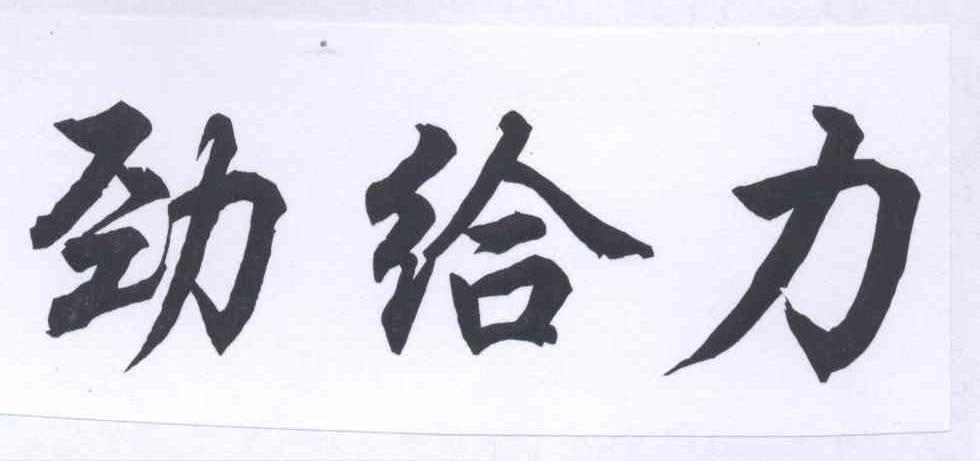 劲给力